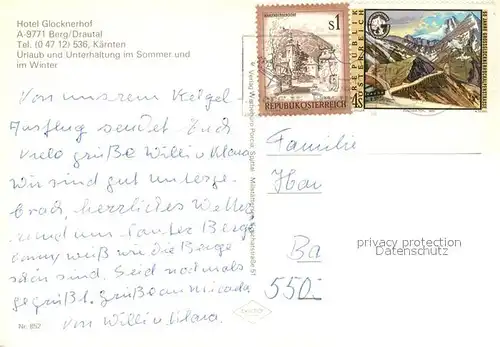 Hotel Glocknerhof
A-9771 Berg/Drautal
Tel. (0 47 12) 536, Kärnten
Urlaub und Unterhaltung im Sommer und
im Winter
Von unserem Kegel-
Ausflug sendet Euch
viele grüße Willi u Klara
Wir sind gut unterge-
bracht, herrliches Wetter
rund um lauter Berge
wie die Berge
schön sind. Seid nochmals
gegrüßt. grüße an
von Willi u Klara.
Nr. 852
S1
REPUBLIK ÖSTERREICH
REPUBLIK
ÖSTERREICH
Familie
Ba
550-
privacy protection
Datenschutz